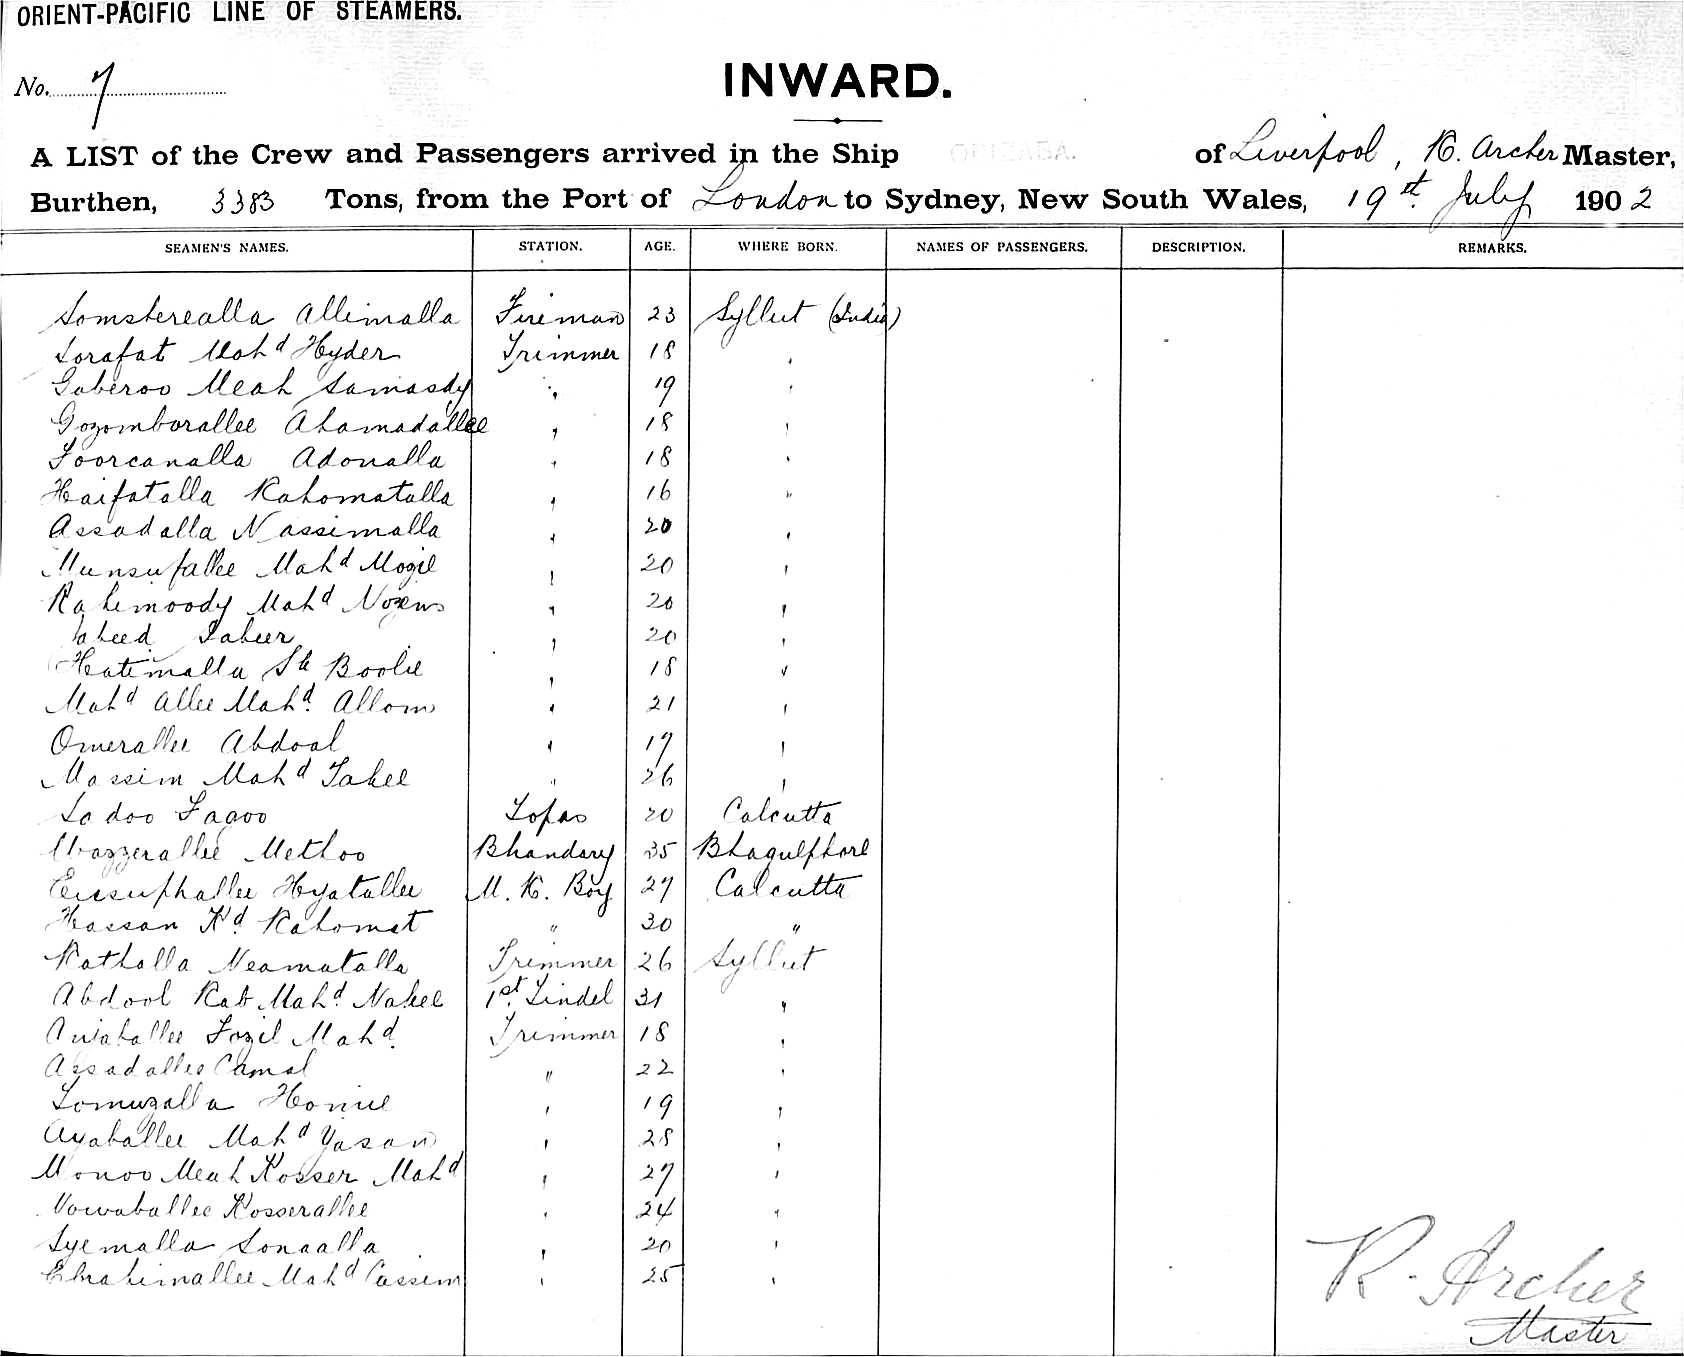 ORIENT-PACIFIC LINE OF STEAMERS.
No. 7
INWARD.
A LIST of the Crew and Passengers arrived in the Ship ORIZABA. of Liverpool, R. Archer Master,
Burthen, 3383 Tons, from the Port of London to Sydney, New South Wales, 19st July 1902
SEAMEN'S NAMES. STATION. AGE. WHERE BORN. NAMES OF PASSENGERS. DESCRIPTION. REMARKS.
Somsterealla Allimalla Fireman 23 Syllut (India)
Sorafat Mahd Hyder Trimmer 18 "
Goberoo Meah Samasdy " 19 "
Gozomborallee Ahamadallee " 18 "
Toorcanalla Adonalla " 18 "
Haifatalla Rahomatalla " 16 "
Assadalla Nassimalla " 20 "
Munsufallee Mahd Mozil " 20 "
Rahimoody Mahd " 20 "
" 20 "
Hatimalla Sk Boolie " 18 "
Mahd Allee Mahd. Allom " 21 "
Omerallee Abdool " 19 "
Massim Mahd Takee " 26 "
Sadoo Fagoo Topas 20 Calcutta
Methoo Bhandary 35 Bhagulphore
Eussuphallee Hyatullee M. R. Boy 27 Calcutta
Hassan Kd. Rahomat " 30 "
Rathalla Neamatalla Trimmer 26 Syllut
Abdool Rab Mahd. Nakee 1st. Tindel 31 "
Fozil Mahd. Trimmer 18 "
Assadallee Camal " 22 "
Tomuzalla " 19 "
Ayaballee Mahd Yasan " 28 "
Monoo Meah Kosser Mahd " 27 "
Kosserallee " 24 "
Syemalla Sonaalla " 20 "
Ebrahimallee Mahd Cassim " 25 "
R. Archer
Master